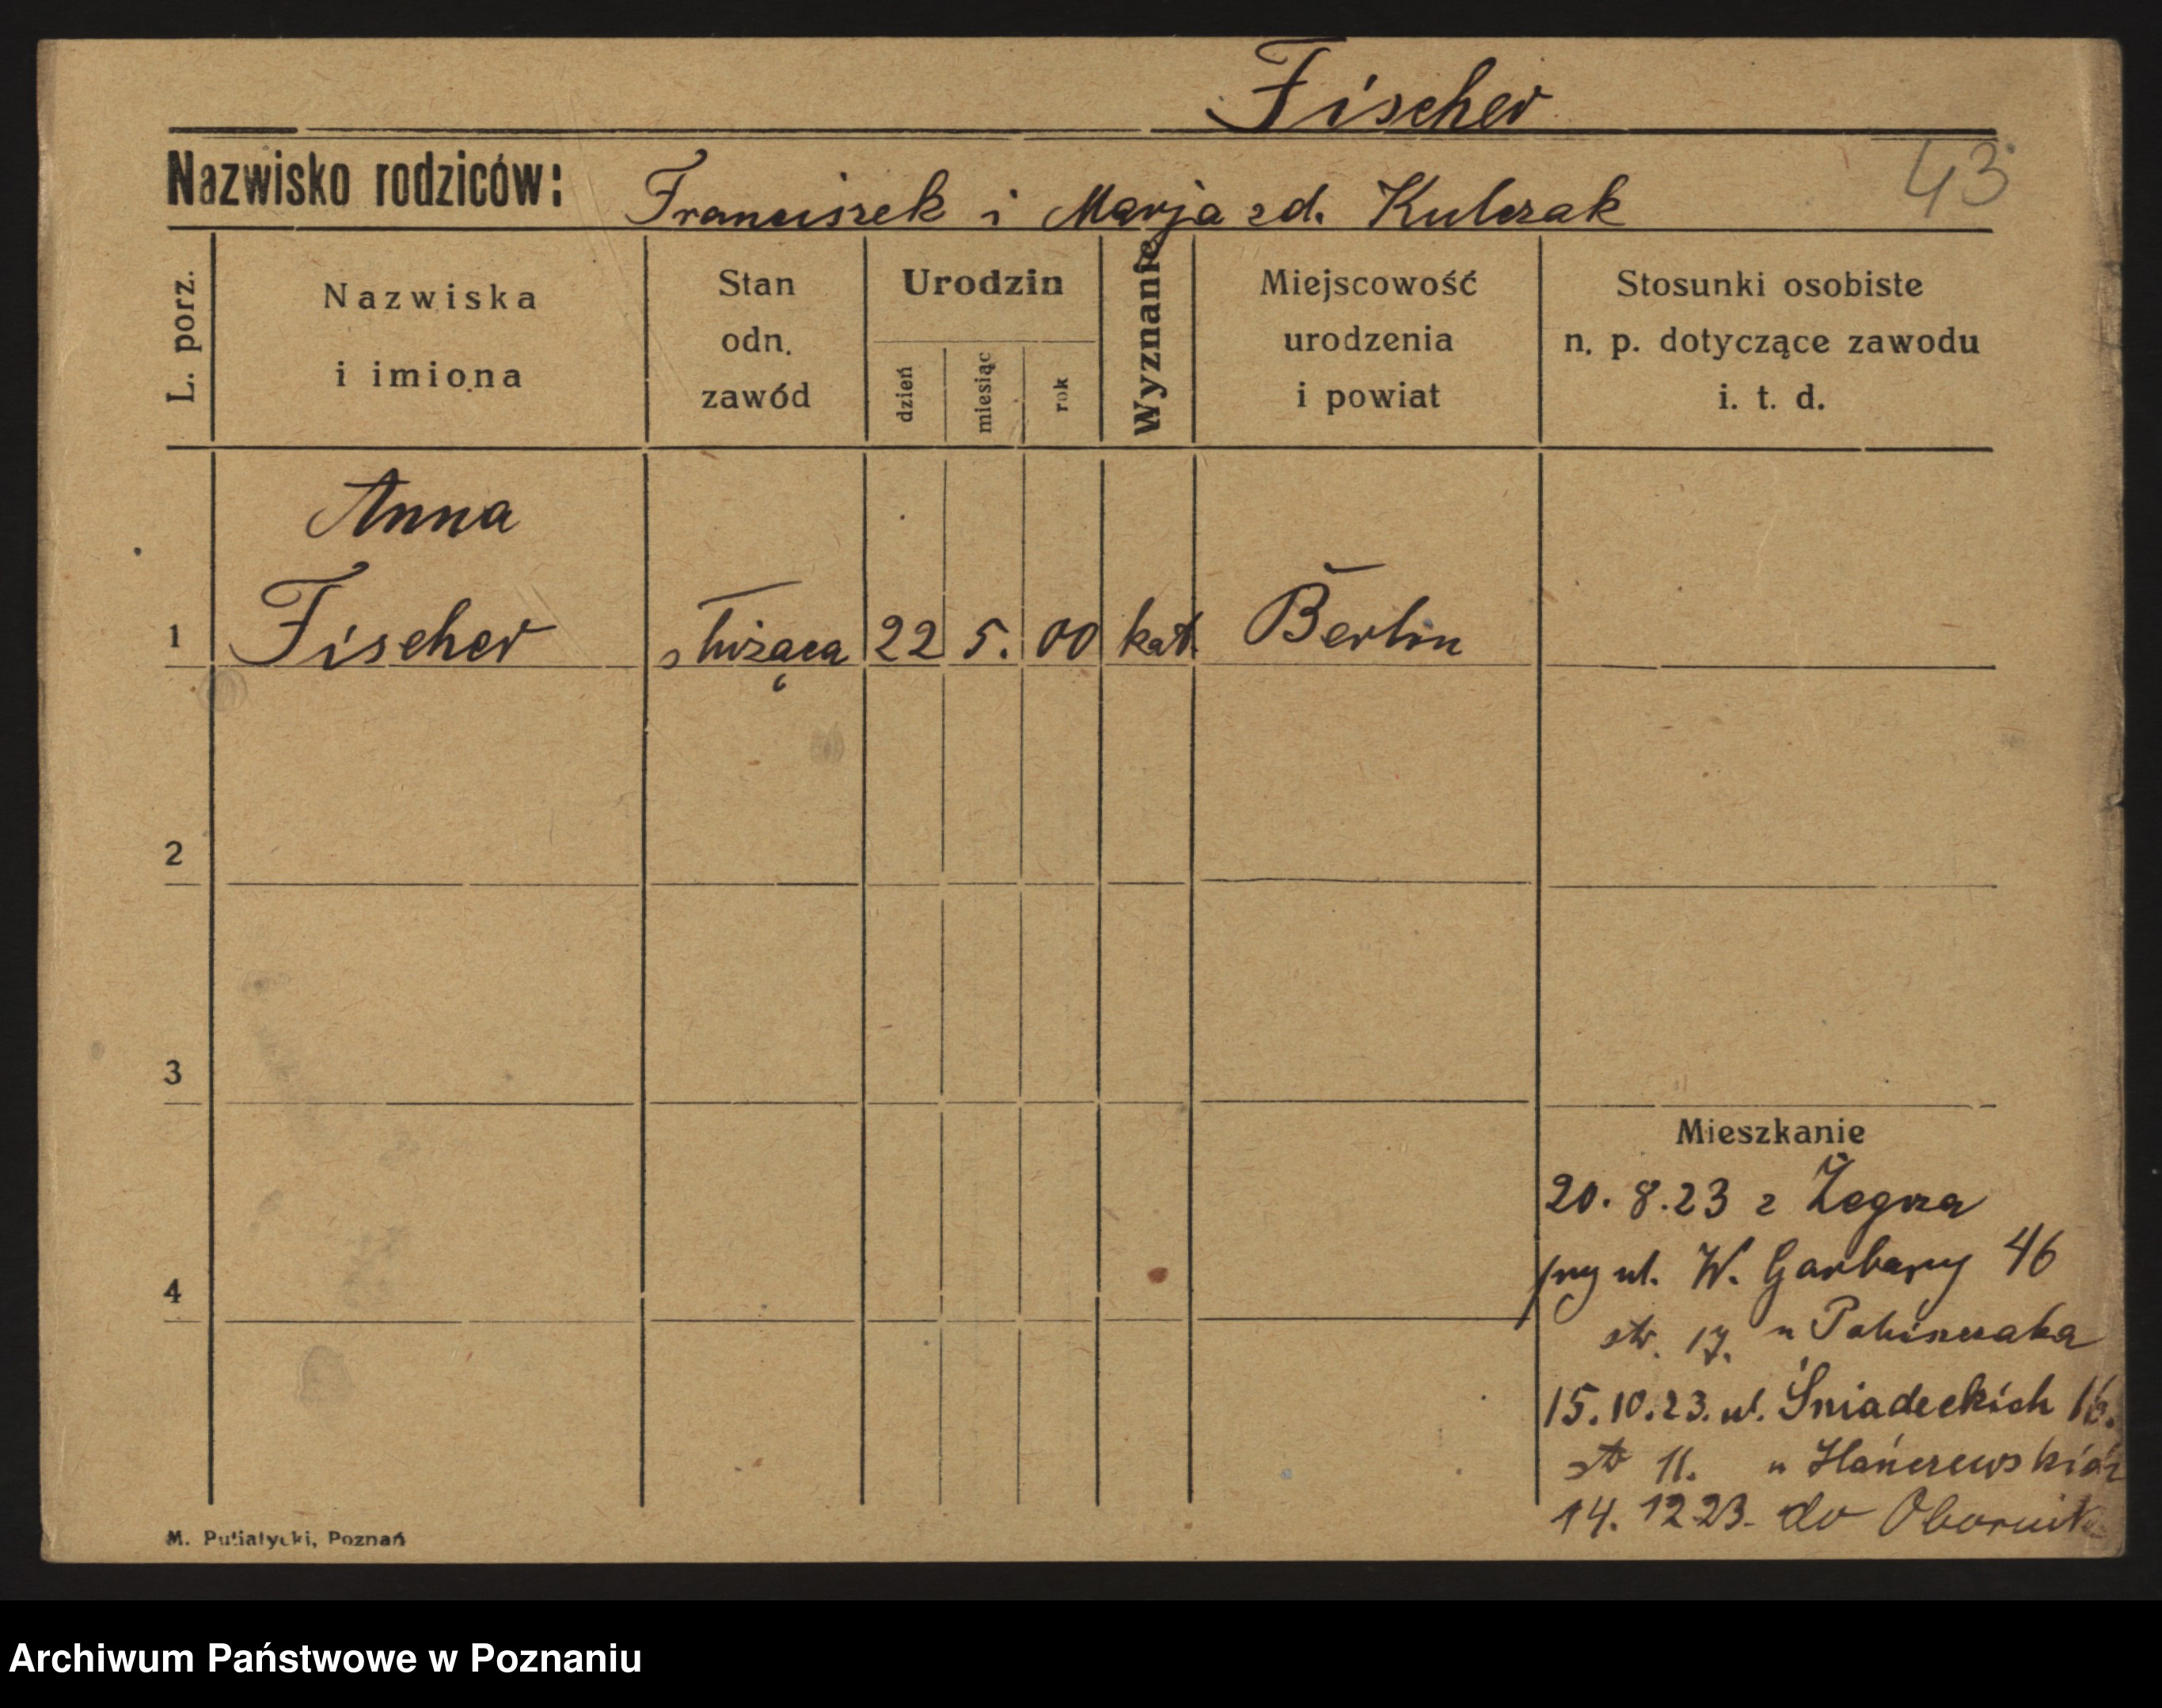 Fischer
Nazwisko rodziców: Franciszek i Marja zd. Kulczak
43
L. porz.
Nazwiska
i imiona
Stan
odn.
zawód
Urodzin
dzień
miesiąc
rok
Wyznanie
Miejscowość
urodzenia
i powiat
Stosunki osobiste
n. p. dotyczące zawodu
i. t. d.
Anna
1 Fischer służąca 22 5. 00 kat. Berlin
2
3
4
Mieszkanie
20. 8. 23 z Żegrza
przy ul. W. Garbary 46
str. 17. u
15. 10. 23. ul. Śniadeckich 16.
str 11. u
14. 12 23. do Obornik
M. Putiatycki, Poznań
Archiwum Państwowe w Poznaniu